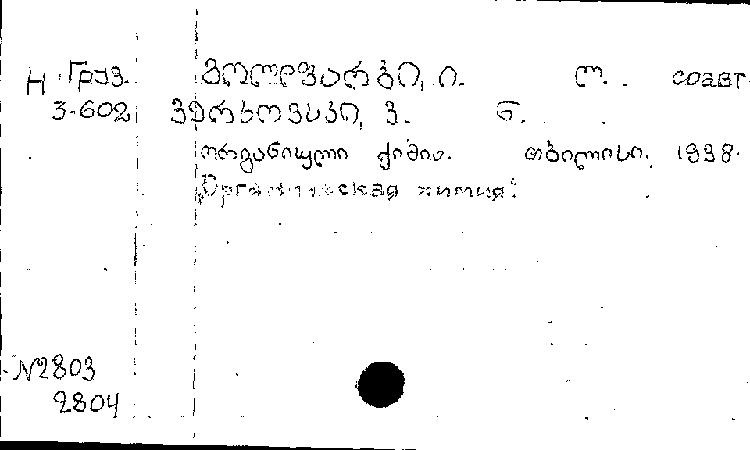 Н Груз. გოლდფარბი, ი. ლ. соавт
3-602 ვერხოვსკი, ვ. ნ.
ორგანიული ქიმია. თბილისი, 1938.
Органическая химия.
N2803
2804